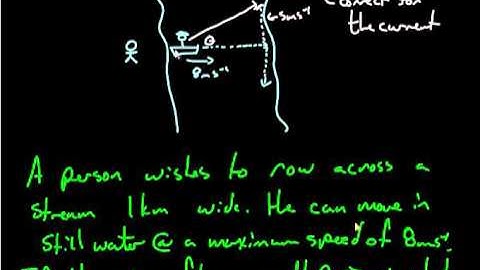 correct for
the current
6.5ms⁻¹
θ
8ms⁻¹
A person wishes to row across a
stream 1km wide. He can move in
still water @ a maximum speed of 8ms⁻¹.